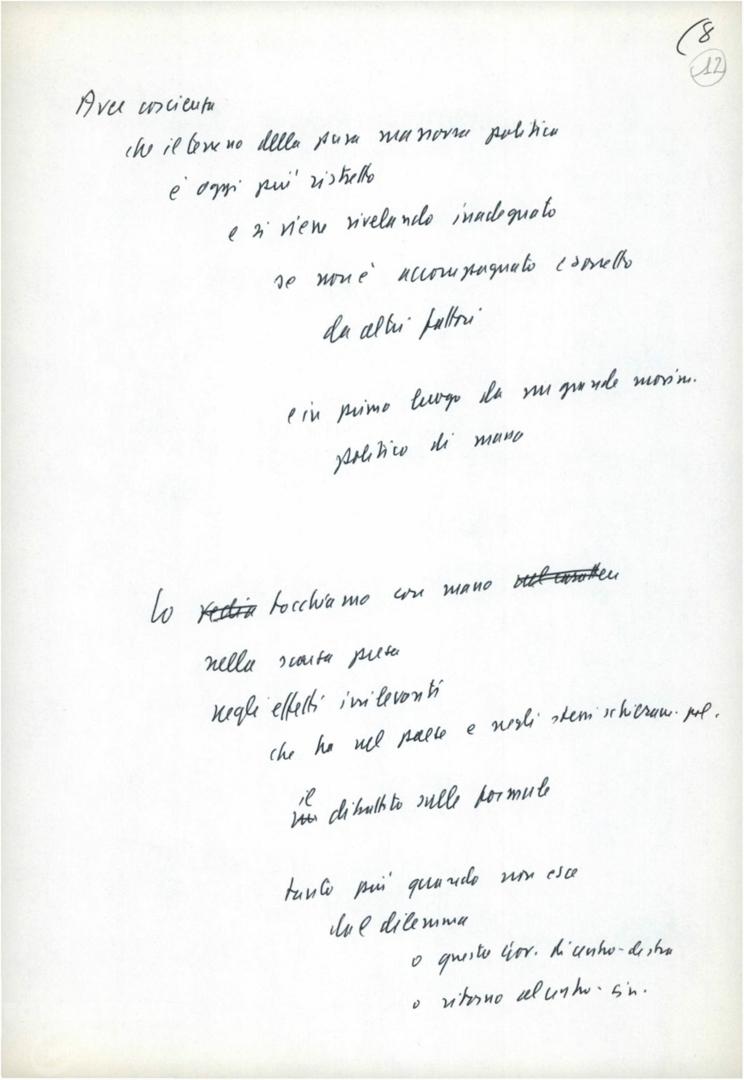 (8
12
Aver coscienza
che il terreno della pura manovra politica
è oggi più ristretto
e si viene rivelando inadeguato
se non è accompagnato e sorretto
da altri fattori
e in primo luogo da un grande movim.
politico di massa
Lo vedia tocchiamo con mano
nella scarsa presa
negli effetti irrilevanti
che ha nel paese e negli stessi schieram. pol.
il
un dibattito sulle formule
tanto più quando non esce
dal dilemma
o questo gov. di centro-destra
o ritorno al centro-sin.